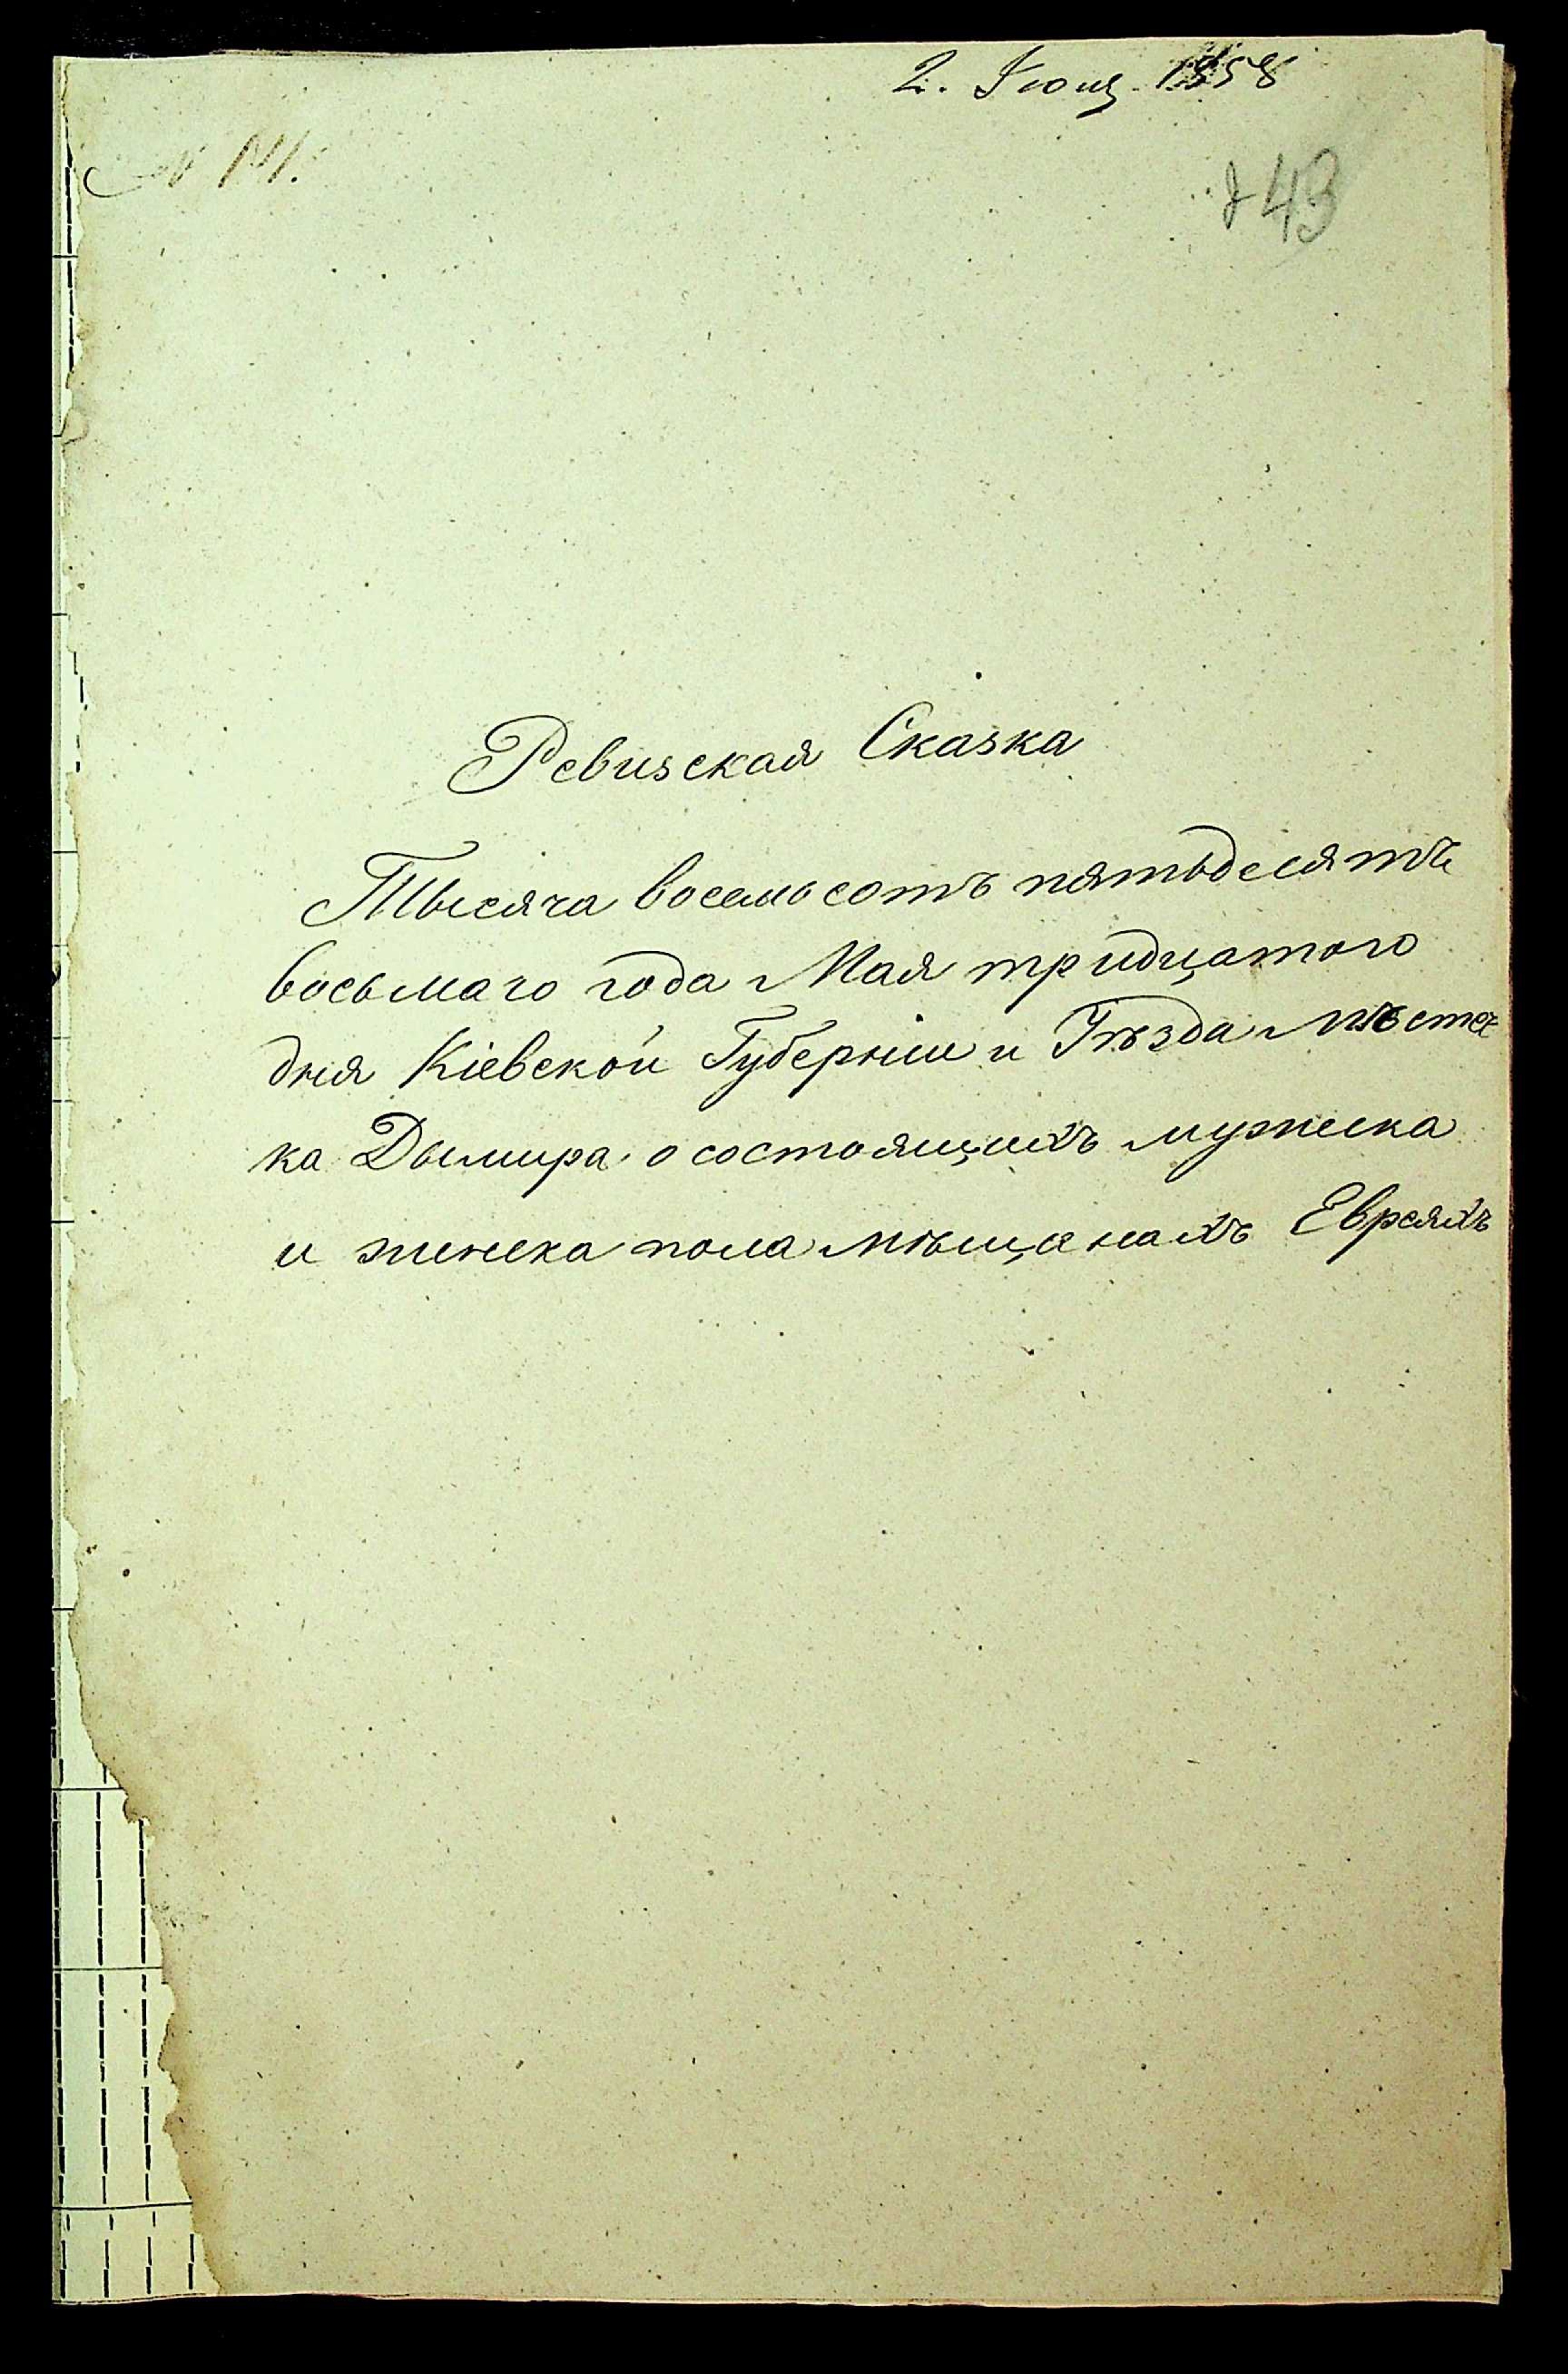 2. Іюня 1858
N 141.
843
Ревизская Сказка
Тысяча восемьсотъ пятьдесятъ
восьмаго года Мая тридцатого
дня Кіевской Губерніи и Уѣзда мѣстеч
ка Дымира о состоящихъ мужеска
и женска пола мѣщанахъ Евреяхъ